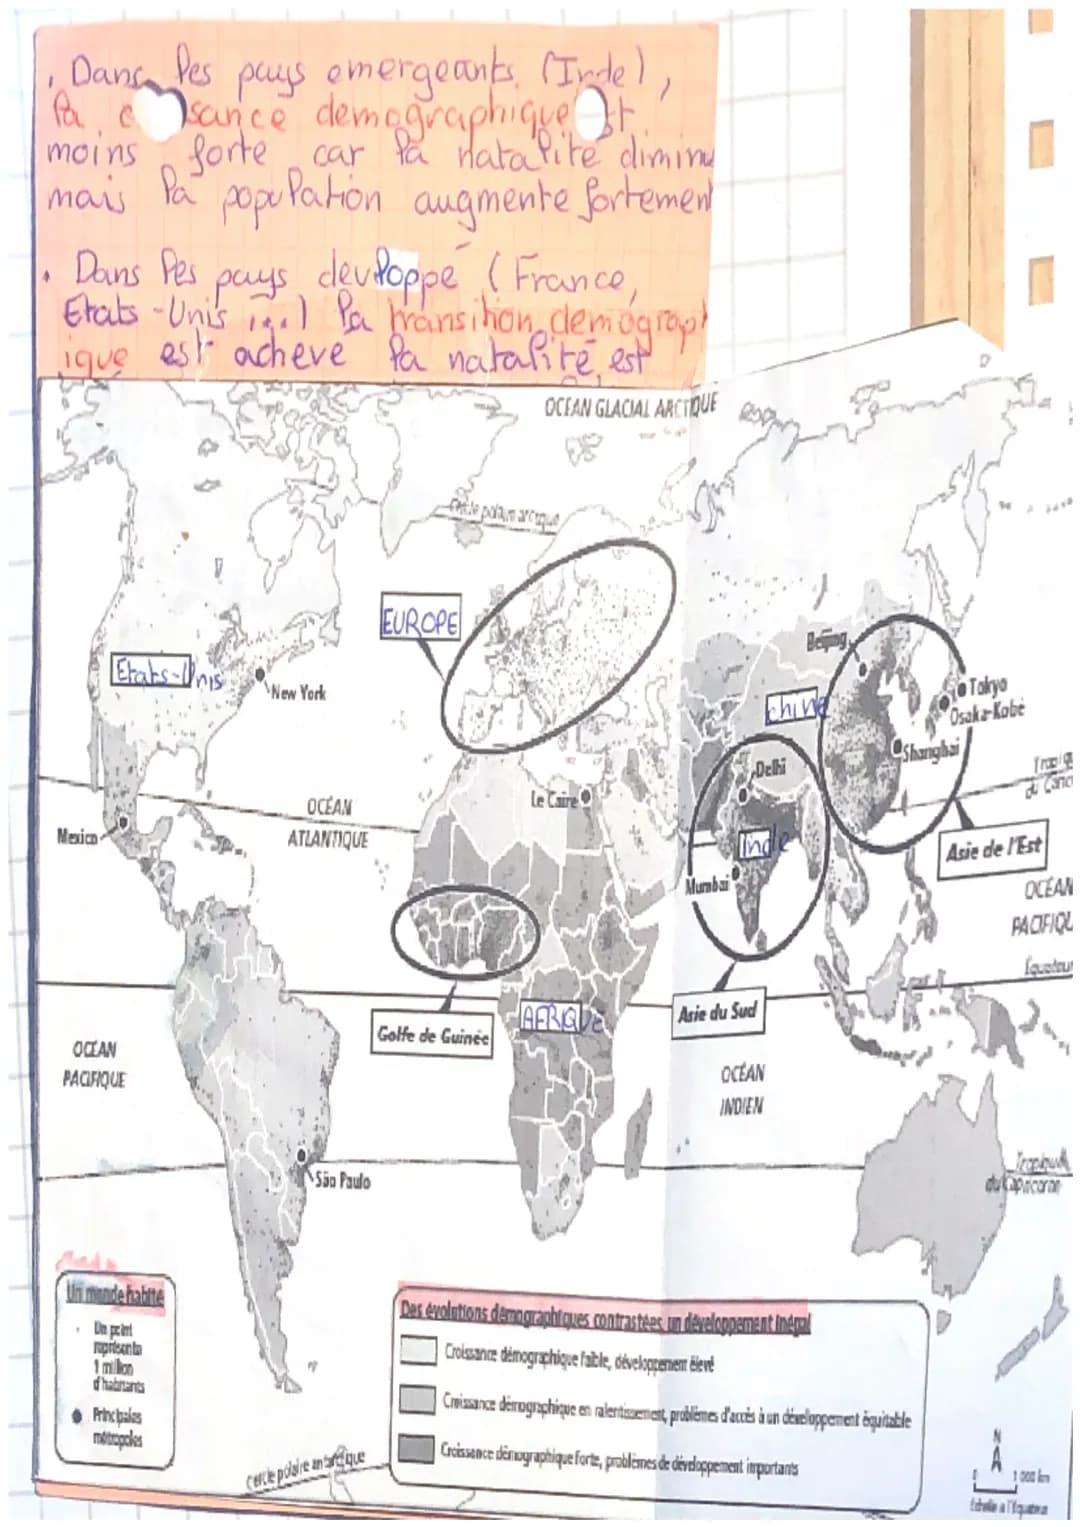 . Dans les pays emergeants (Inde),
la c sance demographique st
moins forte car la natalité diminu
mais la population augmente fortement
. Dans les pays devloppé (France,
Etats-Unis ...) la transition demograph
ique est achevé la natalité est
OCÉAN GLACIAL ARCTIQUE
Cercle polaire arctique
EUROPE
Etats-Unis
New York
Beijing
Tokyo
Osaka-Kobé
chine
Shanghai
Delhi
Tropique
du Cancer
Le Caire
OCÉAN
ATLANTIQUE
Mexico
Inde
Asie de l'Est
Mumbai
OCÉAN
PACIFIQU
Équateur
Golfe de Guinée
AFRIQUE
Asie du Sud
OCÉAN
PACIFIQUE
OCÉAN
INDIEN
São Paulo
Tropique
du Capricorne
Un monde habité
Un point
représente
1 million
d'habitants
Principales
métropoles
Des évolutions démographiques contrastées, un développement inégal
Croissance démographique faible, développement élevé
Croissance démographique en ralentissement, problèmes d'accès à un développement équitable
Croissance démographique forte, problèmes de développement importants
cercle polaire antarctique
N
0 1 000 km
Échelle à l'Équateur